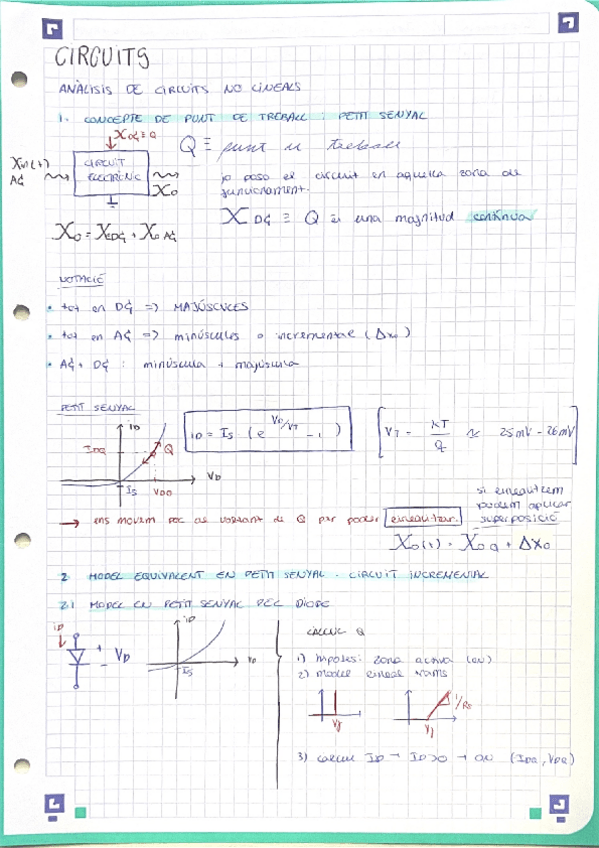 CIRCUITS
ANÀLISIS DE CIRCUITS NO LINEALS
1. CONCEPTE DE PUNT DE TREBALL : PETIT SENYAL
XDC ≡ Q
Q ≡ punt de treball
Xin(t)
AC
CIRCUIT
ELECTRÒNIC
XO
jo poso el circuit en aquella zona de
funcionament.
XDC ≡ Q és una magnitud contínua
XO = XODC + XO AC
NOTACIÓ
• tot en DC => MAJÚSCULES
• tot en AC => minúscules o incremental (Δxo)
• AC + DC : minúscula + majúscula
PETIT SENYAL
iD
IDQ
Q
VD
IS
iD = IS · (e^VD/VT - 1)
VT = KT/q ≈ 25mV - 26mV
→ ens movem pel voltant de Q per poder linealitzar.
si linealitzem
podem aplicar
superposició
XO(t) = XOQ + ΔXO
2. MODEL EQUIVALENT EN PETIT SENYAL. CIRCUIT INCREMENTAL
2.1 MODEL EN PETIT SENYAL DEL DÍODE
iD
+
VD
-
iD
VD
IS
CÀLCUL Q
1) hipòtesi: zona activa (ON)
2) model lineal trams
Vγ
Vγ
3) calcul ID → ID>0 → ON (IDQ, VDQ)